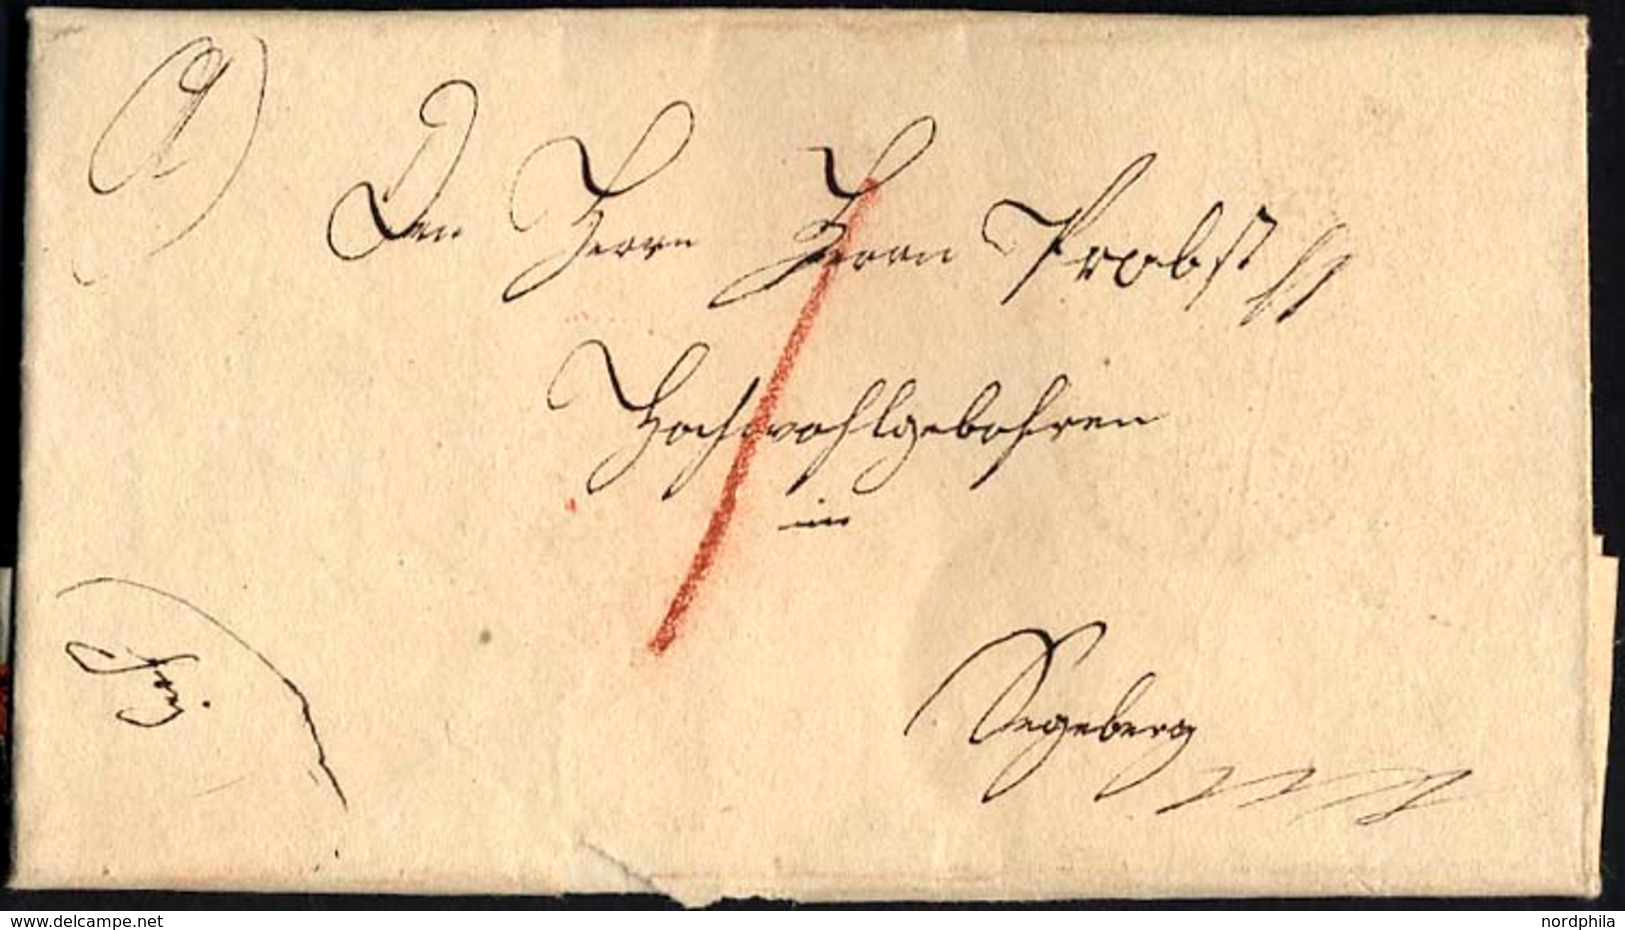 Den Herrn Herrn Probst
Hochwohlgebohren
in
Segeberg
frey.
www.delcampe.net
nordphila